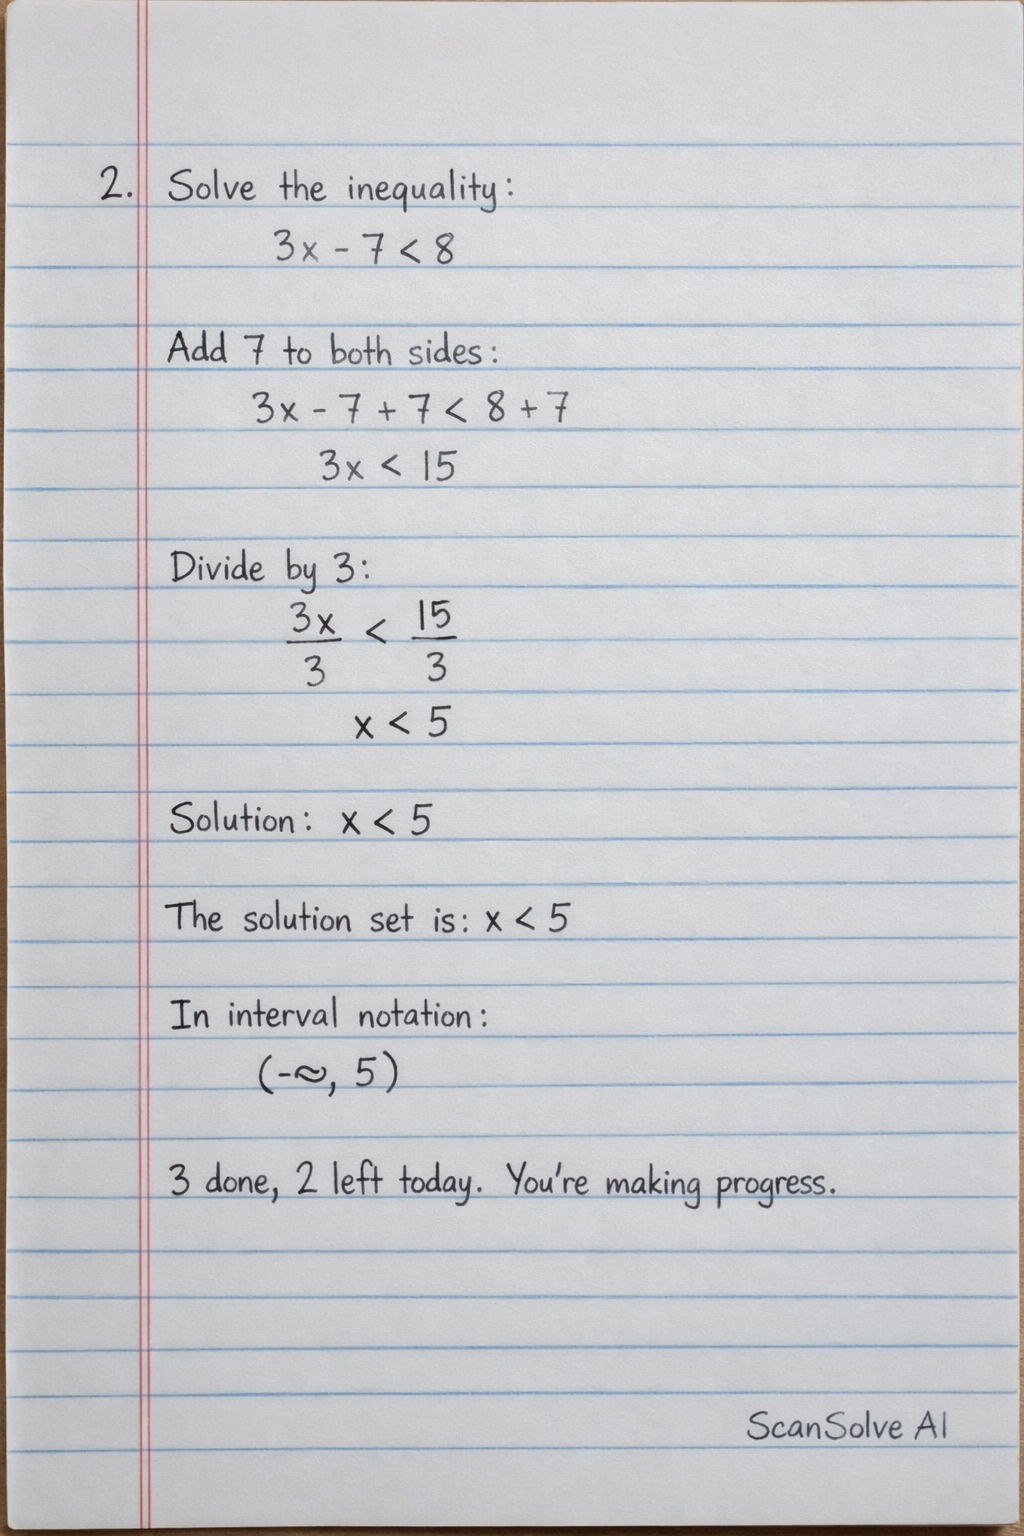 2. Solve the inequality:
3x - 7 < 8
Add 7 to both sides:
3x - 7 + 7 < 8 + 7
3x < 15
Divide by 3:
3x/3 < 15/3
x < 5
Solution: x < 5
The solution set is: x < 5
In interval notation:
(-∞, 5)
3 done, 2 left today. You're making progress.
ScanSolve AI